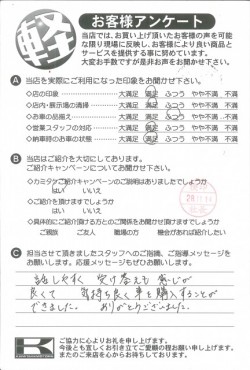 軽
お客様アンケート
当店では、お買い上げ頂いたお客様の声を可能
な限り現場に反映し、お客様により良い商品と
サービスを提供する事に努めています。
大変お手数ですが是非お声をお聞かせ下さい。
A 当店を実際にご利用になった印象をお聞かせ下さい。
◇店の印象 大満足 満足 ふつう やや不満 不満
◇店内・展示場の清掃 大満足 満足 ふつう やや不満 不満
◇お車の品揃え 大満足 満足 ふつう やや不満 不満
◇営業スタッフの対応 大満足 満足 ふつう やや不満 不満
◇納車時のお車の状態 大満足 満足 ふつう やや不満 不満
B 当店はご紹介を大切にしております。
ご紹介キャンペーンについてお聞かせ下さい。
◇カミタケご紹介キャンペーンのご説明はありましたでしょうか
はい いいえ
◇ご紹介を頂けますでしょうか
はい いいえ
◇具体的にご紹介頂ける方とのご関係をお聞かせ頂けますでしょうか
ご親族 ご友人 職場の方 機会があれば紹介したい
C 担当させて頂きましたスタッフへのご指摘、ご指導メッセージを
お願いします。応援メッセージもぜひお願いします。
話しやすく 受け答えも 感じが
良くて 気持ち良く 車を購入することが
できました。 ありがとうございました。
K
ご協力に心よりお礼を申し上げます。
今後とも宜しくお引き立てご愛顧の程お願い申し上げます。
またのご来店を心からお待ちしております。